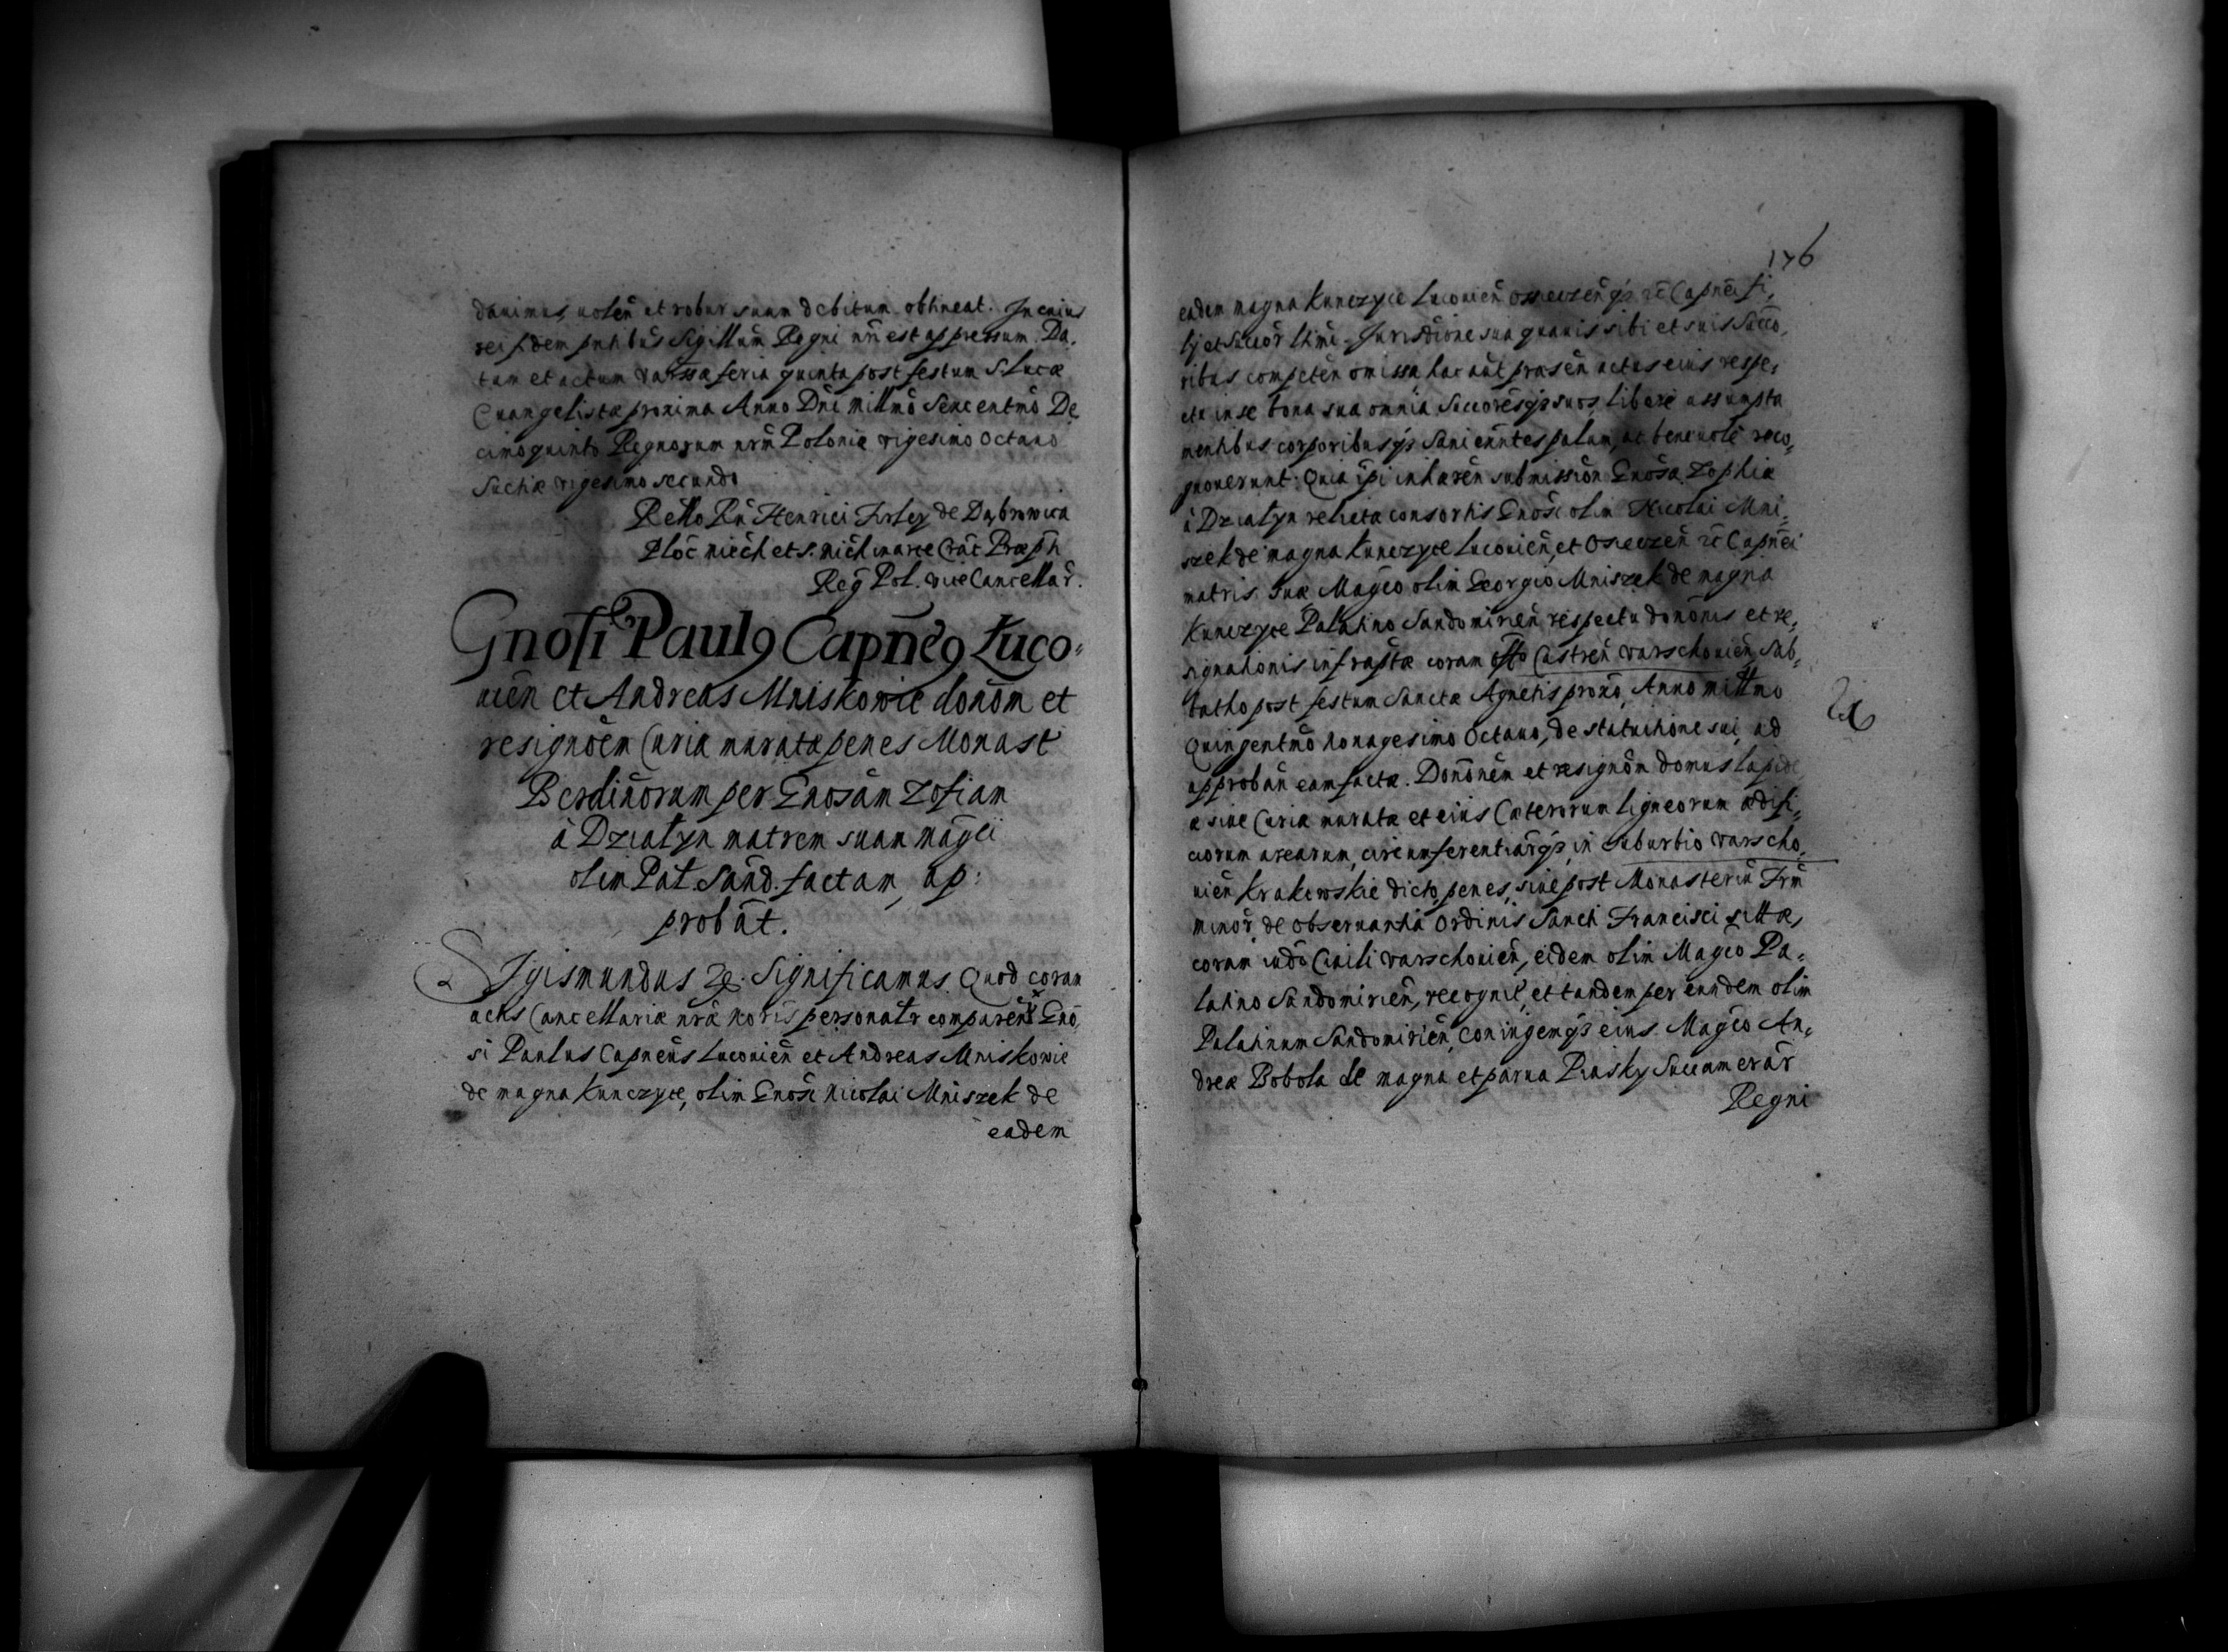 dauimus, uolen̄ ut robur suum debitum obtineat. In cuius
rei fidem pntibus Sigillum Regni nri est appressum. Da,
tum et actum Varssæ feria quinta post festum S. Lucæ
Euangelistæ proxima Anno Dni Millmo Sexcentmo De
cimoquinto Regnorum nrm Poloniæ vigesimo octauo
Suetiæ vigesimo secundo
Rello Rn̄ Henrici Firley de Dąbrowica
Ploc̄ niech et S. mich in arce Crac̄ Præpn̄
Reg Pol. vice Cancellar̄.
Gnosi Paul9 Capne9 Łuco-
uien̄ et Andreas Mniskowie donom et
resignoem Curiæ muratæ penes Monast
Berdinorum per Gnosam Zofiam
à Dzialyn matrem suam mag̅ci
olim Pal. Sand. factam, ap:
probāt.
Sigismundus &c. Significamus. Quod coram
actis Cancellariæ nræ noris personatr comparen̄ Gno,
si Paulus Capneus Lucouien̄ et Andreas Mniskowie
de magna Kunczyce, olim Gnosi Nicolai Mniszek de
eadem
176
eadem magna Kunczyce Lucouien̄ Osieczen̄ q; &c Capnei fi,
lij et Succor̄ ltimi. Jurisdione sua quauis sibi et suis Succo,
ribus competen̄ omissa hac aut̄ præsen̄ actus eius respe,
ctu in se bona sua omnia Succoresq; suos, libere assumpta
mentibus corporibusq; sani exn̄tes palam, ac beneuole reco,
gnouerunt: Quia ipi inhæren̄ submission̄ Gnosæ Zophiæ
à Dzialyn relictæ consortis Gnosi olim Nicolai Mni,
szek de magna Kunczyce Lucouien̄, et Osieczen̄ &c Capnei
matris suæ Mag̅co olim Georgio Mniszek de magna
Kunczyce Palatino Sandomirien̄ respectu dononis et re,
signationis infraptæ coram offo Castren̄ Varschouien̄ Sab,
batho post festum Sanctæ Agnetis proxo, Anno millmo
Quingentmo nonagesimo Octauo, de statuitione sui, ad
approban̄ eam factæ. Dononem et resignom domus lapide
æ siue Curiæ muratæ et eius Cæterorum ligneorum ædifi,
ciorum arearum, circumferentiarq;, in suburbio Varscho,
uien̄ Krakowskie dicto, penes, siue post Monasterium Frm
minor, de obseruantia Ordinis Sancti Francisci sittæ,
coram iudo Ciuili Varschouien̄, eidem olim Mag̅co Pa-
latino Sandomirien̄, recognit̄, et tandem per eundem olim
Palatinum Sandomirien̄, Coniugemq; eius Mag̅co An,
dreæ Bobola de magna et parua Piasky Succamerar̄
Regni